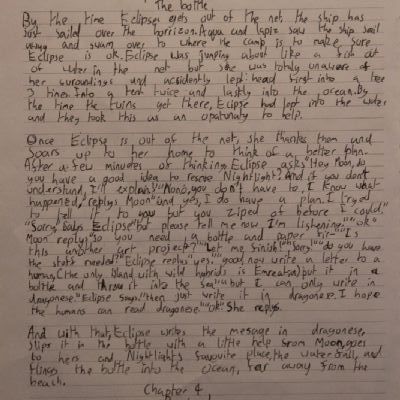 The bottle
By the time Eclipse gets out of the net, the ship has
just sailed over the horrizon. Aqua and lapiz saw the ship sail
away and swam over to where the camp is to make sure
Eclipse is ok. Eclipse was jumping about like a fish out
of water in the net but she was totaly unawere of
her suroundings and accidently lept head first into a tree
3 times. Into a tent twice and lastly into the ocean. By
the time the twins get there, Ecipse had lept into the water
and they took this as an opatunaty to help.
Once Eclipse is out of the net, she thanks them and
soars up to her home to think of a better plan.
After a few minutes of thinking Eclipse asks "Hey Moon, do
you have a good idea to rescue Nightlight? And if you don't
understand, I'll explain" "Nono, you don't have to, I know what
happened," replys Moon "and yes, I do have a plan. I tryed
to tell it to you but you ziped of before I could."
"Sorry," says Eclipse "but please tell me now I'm listening" "ok"
Moon replys "so you need a bottle and paper
this another art project?" "Let me finish!" "Sorry" "do you have
the stuff needed?" Eclipse replys "yes" "good, now write a letter to a
human, (the only island with wild hybrids is Emreation) put it in a
bottle and throw it into the sea" "but I can only write in
dragonese," Eclipse says. "then just write it in dragonese. I hope
the humans can read dragonese" "ok" She replys.
And with that, Eclipse writes the mesage in dragonese,
slips it in the bottle with a little help from Moon, goes
to hers and Nightlight's favourite place, the waterfall, and
flings the bottle into the ocean, far away from the
beach.
Chapter 4